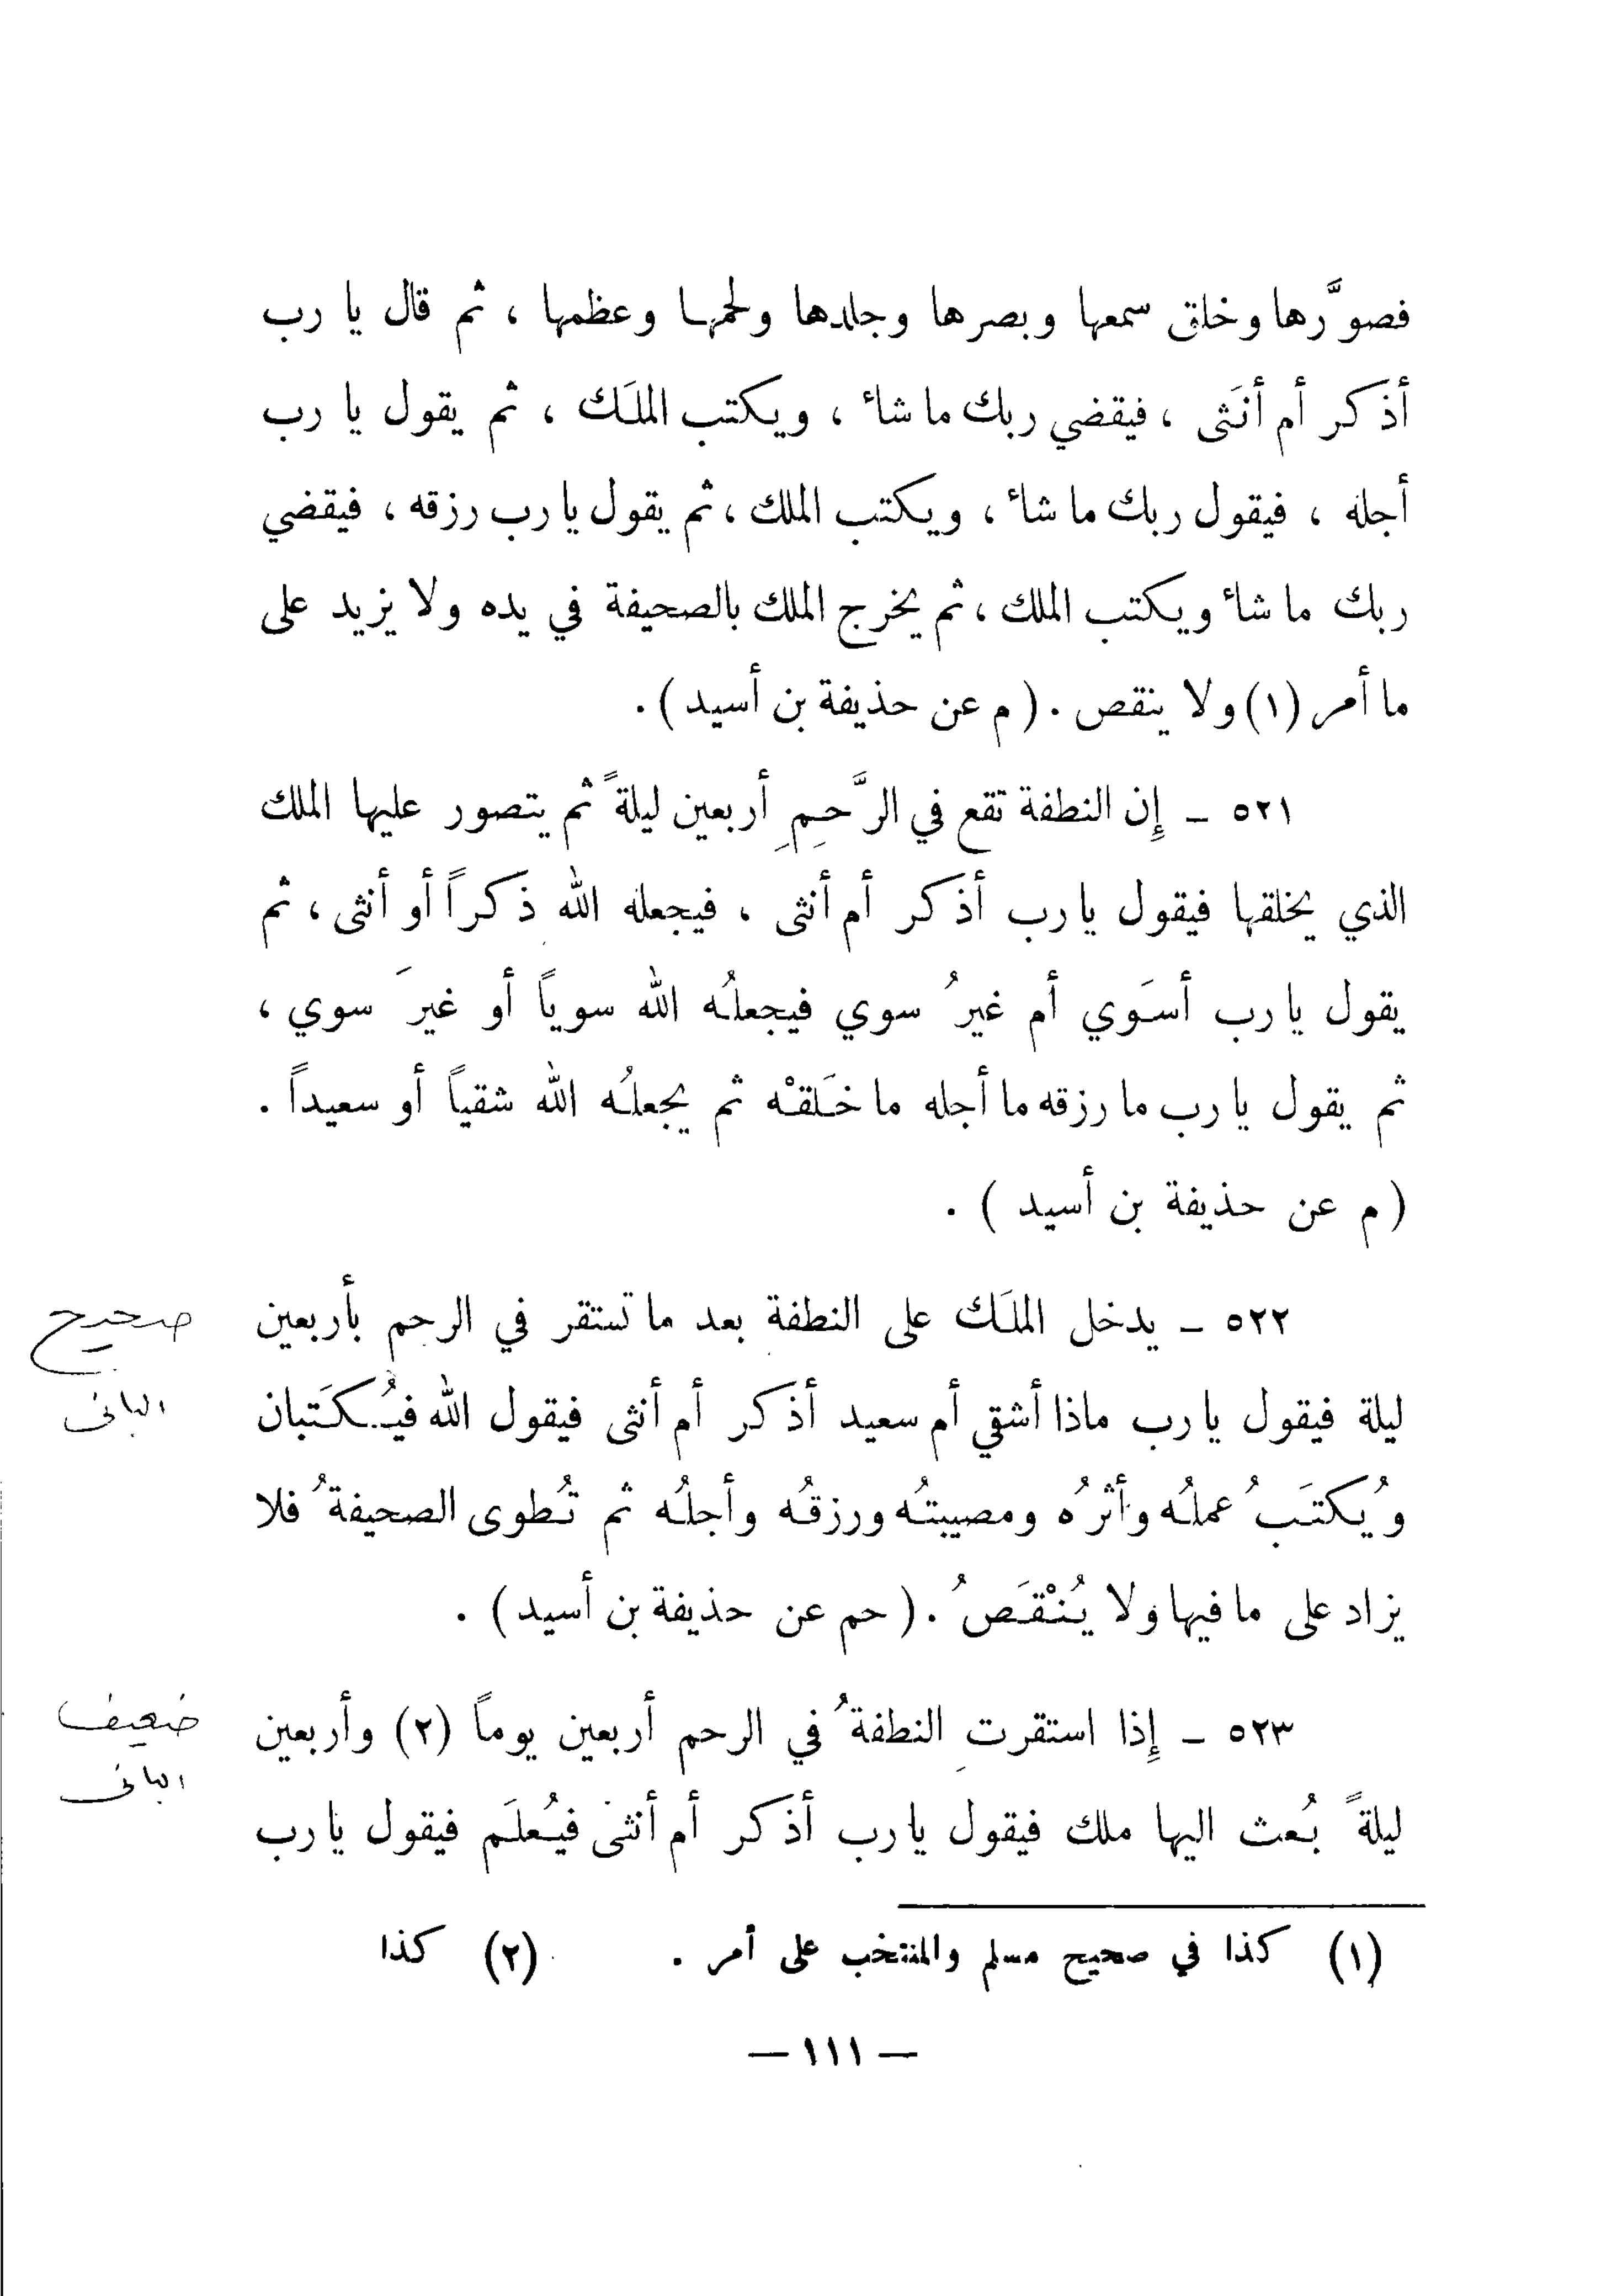 فصوَّرها وخلق سمعها وبصرها وجلدها ولحمها وعظمها ، ثم قال يا رب
أذكر أم أنَثى ، فيقضي ربك ما شاءَ ، ويكتب الملَك ، ثم يقول يا رب
أجله ، فيقول ربك ما شاءَ ، ويكتب الملك ، ثم يقول يا رب رزقه ، فيقضي
ربك ما شاءَ ويكتب الملك ، ثم يخرج الملك بالصحيفة في يده ولا يزيد على
ما أمر (١) ولا ينقص . ( م عن حذيفة بن أسيد ) .
٥٢١ ـ إِن النطفة تقع في الرَّحِمِ أربعين ليلةً ثم يتصور عليها الملك
الذي يخلقها فيقول يا رب أذكر أم أنثى ، فيجعله الله ذكراً أو أنثى ، ثم
يقول يا رب أسَوي أم غيرُ سوي فيجعلُه الله سوياً أو غيرَ سوي ،
ثم يقول يا رب ما رزقه ما أجله ما خَلقْه ثم يجعلُه الله شقياً أو سعيداً .
( م عن حذيفة بن أسيد ) .
٥٢٢ ـ يدخل الملَك على النطفة بعد ما تستقر في الرحم بأربعين
صحيح
ليلة فيقول يا رب ماذا أشقي أم سعيد أذكر أم أنثى فيقول الله فيُكتَبان
البانى
ويُكتَبُ عملُه وأثرُه ومصيبتُه ورزقُه وأجلُه ثم تُطوى الصحيفةُ فلا
يزاد على ما فيها ولا يُنْقَصُ . ( حم عن حذيفة بن أسيد ) .
٥٢٣ ـ إِذا استقرتِ النطفةُ في الرحم أربعين يوماً (٢) وأربعين
ضعيف
البانى
ليلةً بُعث اليها ملك فيقول يا رب أذكر أم أنثى فيُعلَم فيقول يا رب
(١) كذا في صحيح مسلم والمنتخب على أمر . (٢) كذا
— ١١١ —